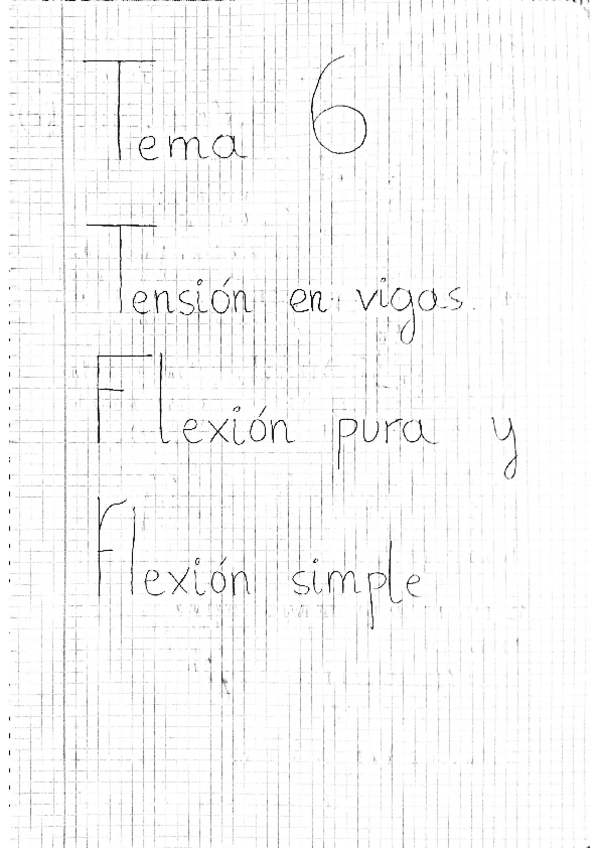 Tema 6
Tensión en vigas.
Flexión pura y
flexión simple